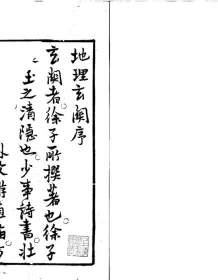 地理玄闗序
玄闗者徐子所撰著也徐子
玉之清隱也少事詩書壯